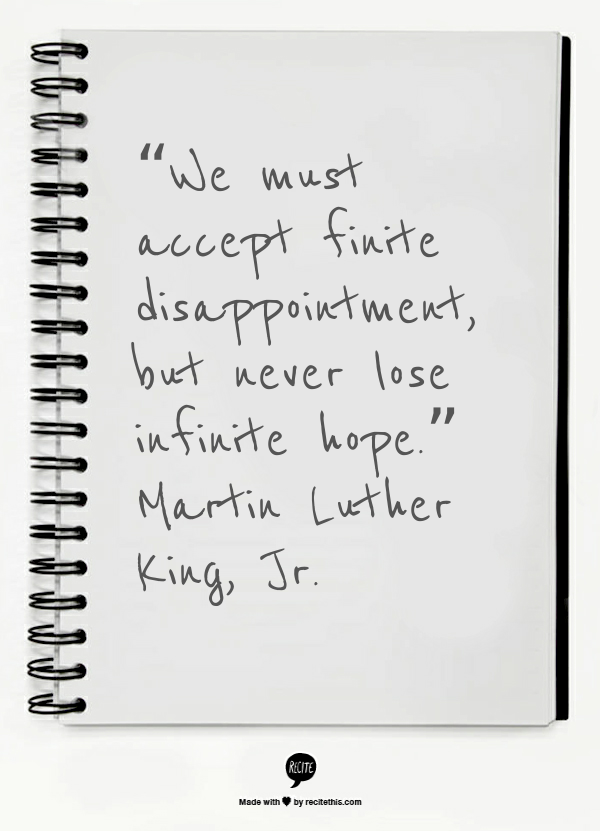 “We must
accept finite
disappointment,
but never lose
infinite hope.”
Martin Luther
King, Jr.
RECITE
Made with ♥ by recitethis.com